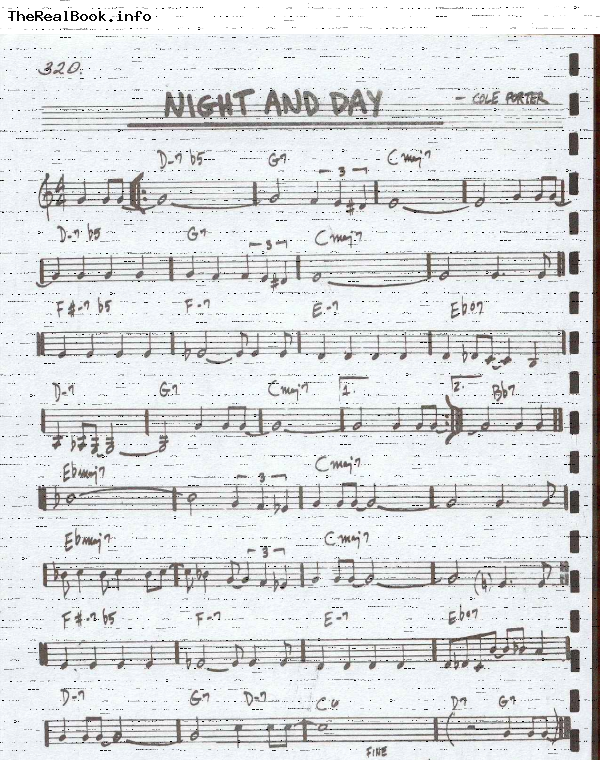 TheRealBook.info
320.
NIGHT AND DAY
- COLE PORTER
D-7 b5 G7 Cmaj7
3
D-7 b5 G7 Cmaj7
3
F#-7 b5 F-7 E-7 Ebo7
D-7 G7 Cmaj7 1. 2. Bb7
Ebmaj7 Cmaj7
3
Ebmaj7 Cmaj7
3
F#-7 b5 F-7 E-7 Ebo7
D-7 G7 D-7 C6 D7 G7
FINE